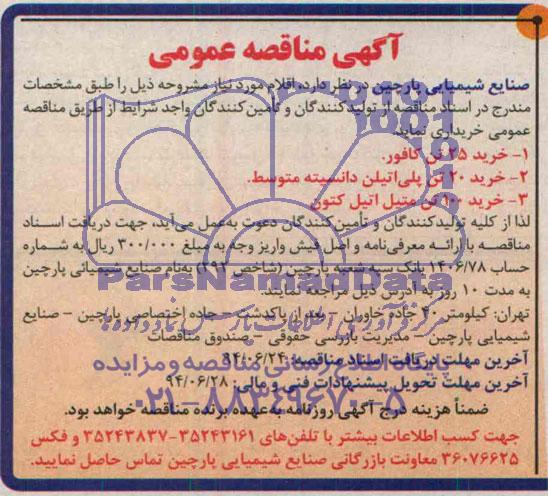 آگهی مناقصه عمومی
صنایع شیمیایی پارچین در نظر دارد، اقلام مورد نیاز مشروحه ذیل را طبق مشخصات
مندرج در اسناد مناقصه از تولیدکنندگان و تأمین‌کنندگان واجد شرایط از طریق مناقصه
عمومی خریداری نماید.
۱- خرید ۲۵ تن کافور.
۲- خرید ۲۰ تن پلی‌اتیلن دانسیته متوسط.
۳- خرید ۱۰۰ تن متیل اتیل کتون
لذا از کلیه تولیدکنندگان و تأمین‌کنندگان دعوت به‌عمل می‌آید، جهت دریافت اسناد
مناقصه با ارائه معرفی‌نامه و اصل فیش واریز وجه به مبلغ ۳۰۰/۰۰۰ ریال به شماره
حساب ۱۴۰۶/۷۸ بانک سپه شعبه پارچین (شاخص ۲۹۲) به‌نام صنایع شیمیائی پارچین
به مدت ۱۰ روز به آدرس ذیل مراجعه نمایند.
تهران: کیلومتر ۴۰ جاده خاوران – بعد از پاکدشت – جاده اختصاصی پارچین – صنایع
شیمیایی پارچین – مدیریت بازرسی حقوقی – صندوق مناقصات
آخرین مهلت دریافت اسناد مناقصه: ۹۴/۰۶/۲۴
آخرین مهلت تحویل پیشنهادات فنی و مالی: ۹۴/۰۶/۲۸
ضمناً هزینه درج آگهی روزنامه به عهده برنده مناقصه خواهد بود.
جهت کسب اطلاعات بیشتر با تلفن‌های ۳۵۲۴۳۱۶۱-۳۵۲۴۳۸۳۷ و فکس
۳۶۰۷۶۶۲۵ معاونت بازرگانی صنایع شیمیایی پارچین تماس حاصل نمایید.
ParsNamadData
پایگاه اطلاع رسانی مناقصه و مزایده
۰۲۱-۸۸۳۴۹۶۷۰-۵